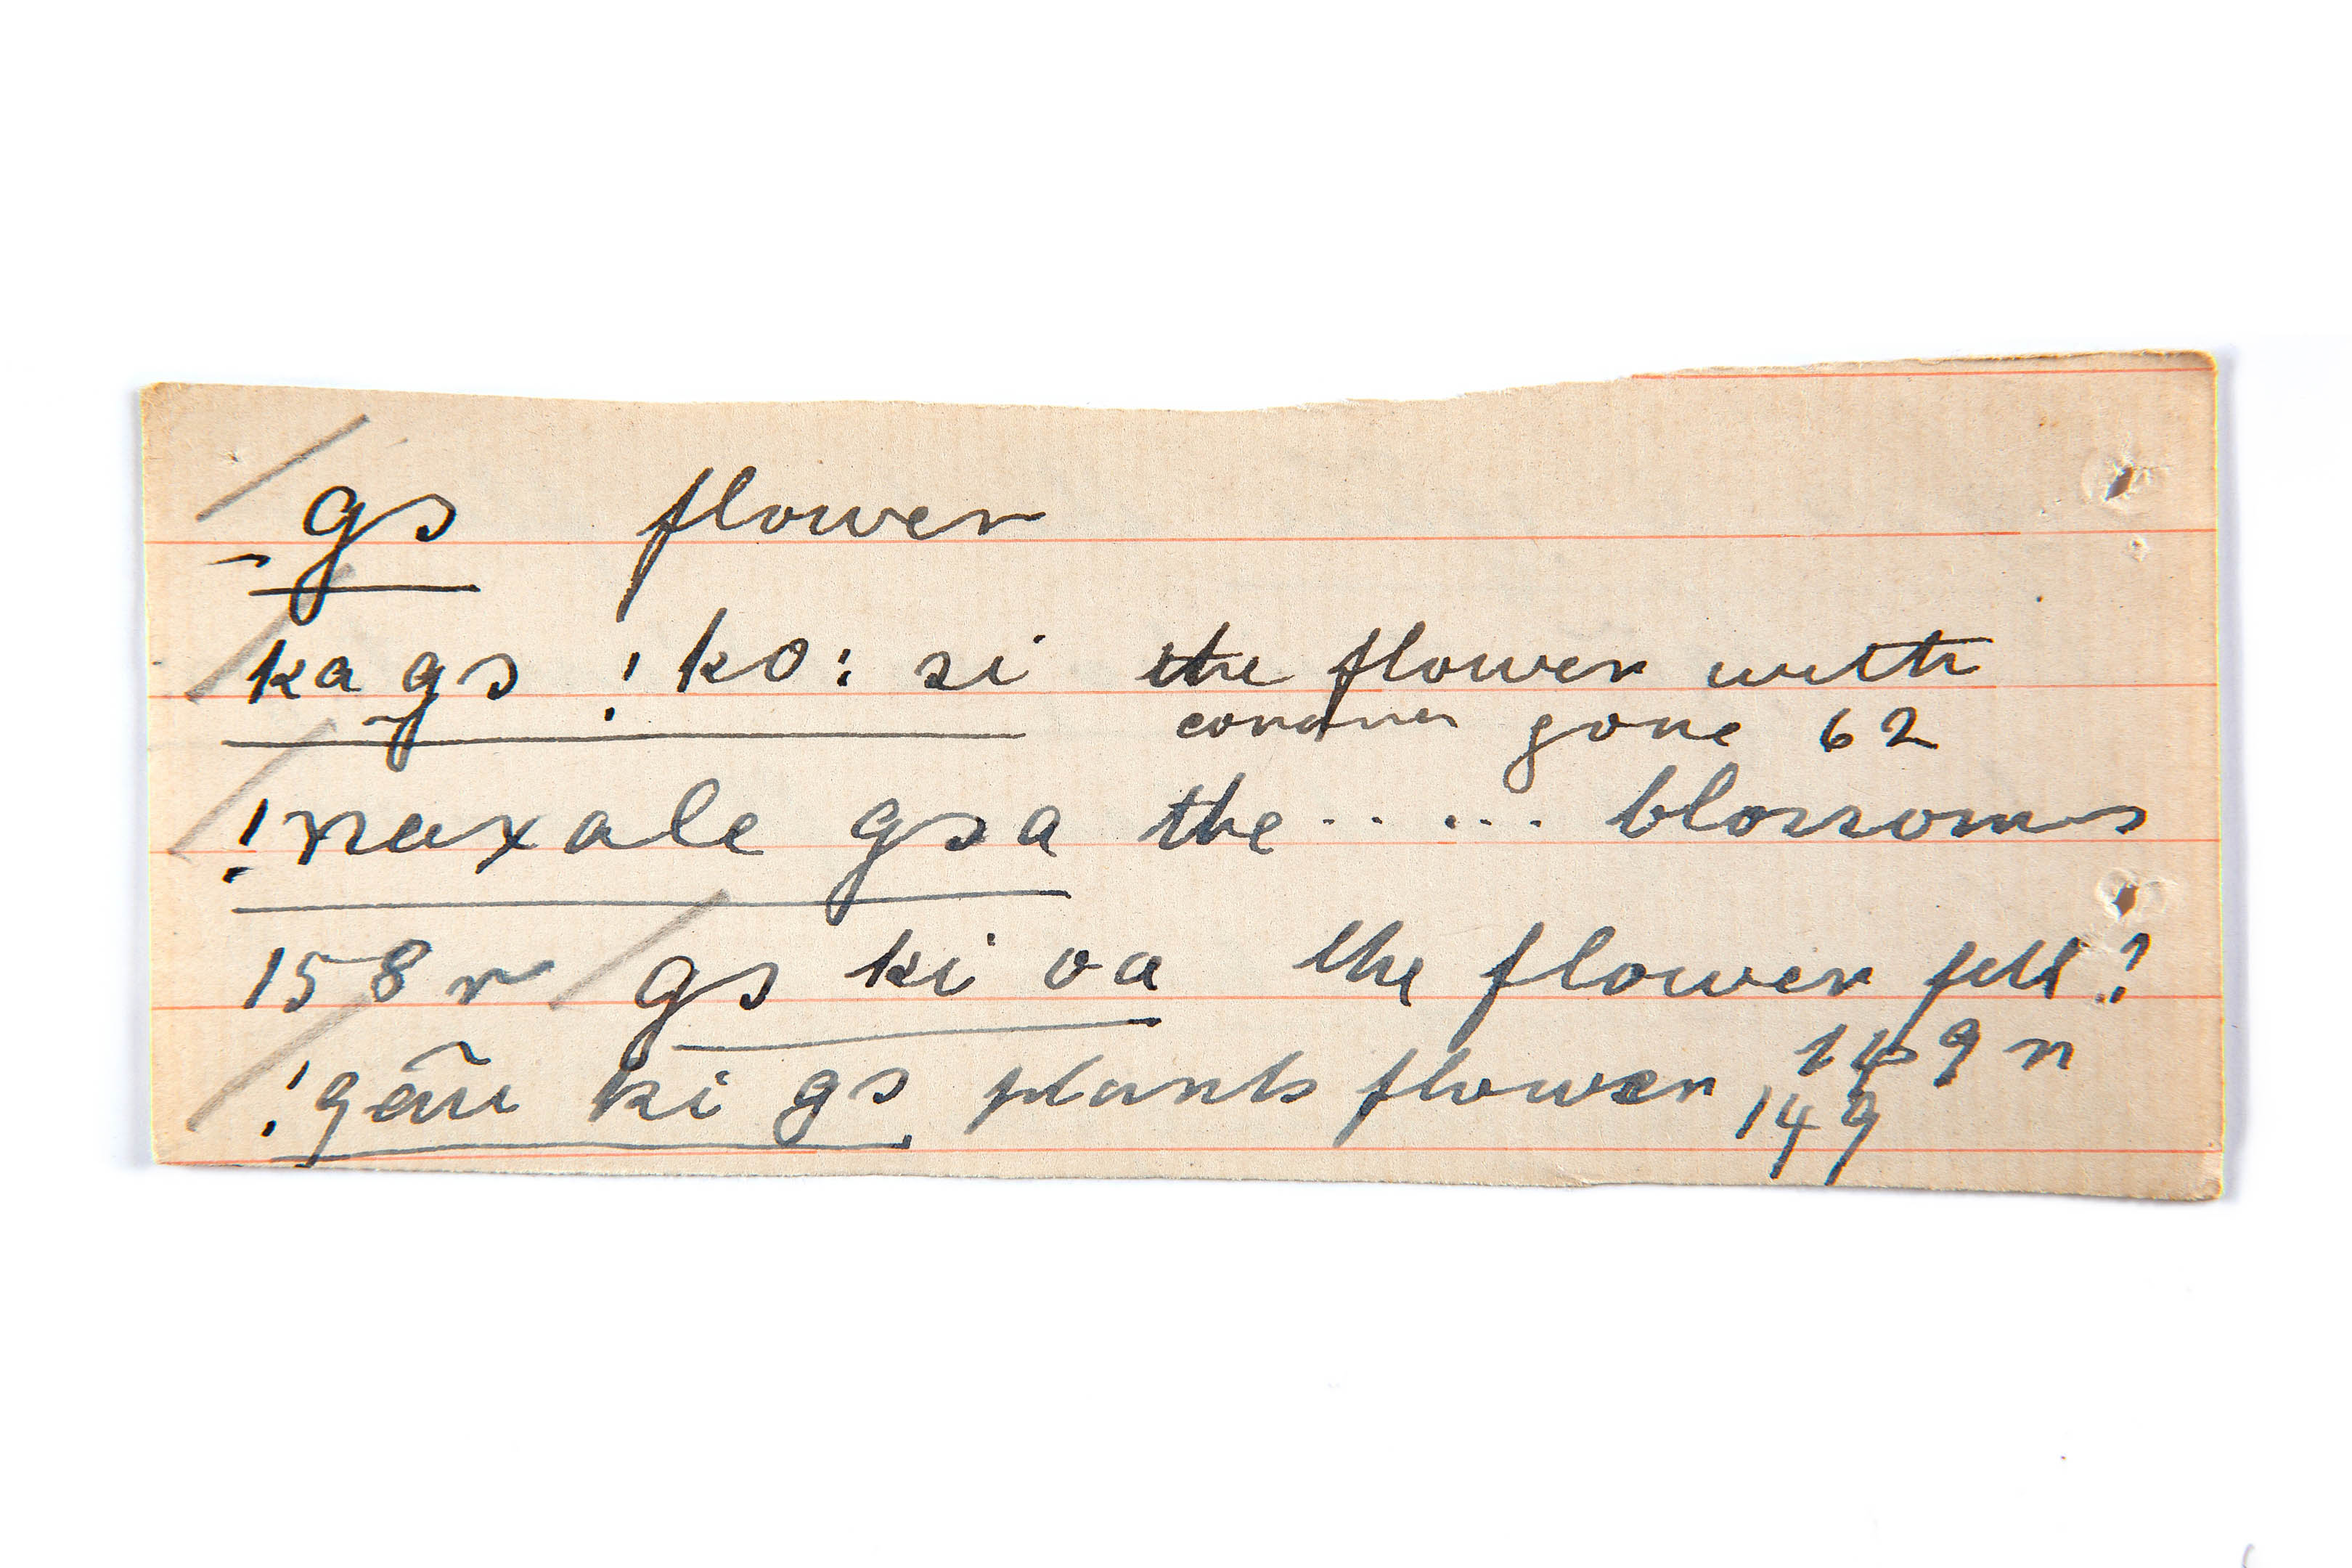 gs flower
kags !ko: si the flower with
gone 62
!naxale gsa the ...... blossoms
158 r gs ki oa the flower fell?
149 r
!gãu ki gs plants flower 149